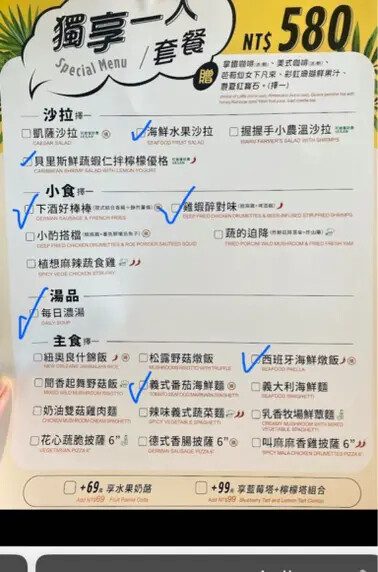 獨享一人套餐
Special Menu
NT$ 580
贈
拿鐵咖啡(冰/熱)、美式咖啡(冰/熱)、
芭莉仙女下凡來、彩虹珊瑚鮮果汁、
(擇一)
沙拉擇一
凱薩沙拉
CAESAR SALAD
海鮮水果沙拉
SEAFOOD FRUIT SALAD
握握手小農溫沙拉
WARM FARMER'S SALAD WITH SHRIMPS
貝里斯鮮蔬蝦仁拌檸檬優格
CARIBBEAN SHRIMP SALAD WITH LEMON YOGURT
小食擇一
下酒好棒棒
GERMAN SAUSAGE & FRENCH FRIES
雞蝦醉對味
小酌搭檔
DEEP FRIED CHICKEN DRUMETTES & ROE POWDER SAUTEED SQUID
蔬的迫降
FRIED POPCORN WILD MUSHROOM & FRIED YAM
植想麻辣蔬食雞
SPICY VEGE CHICKEN STIR-FRY
湯品
每日濃湯
DAILY SOUP
主食擇一
紐奧良什錦飯
NEW ORLEANS JAMBALAYA RICE
松露野菇燉飯
MUSHROOM RISOTTO WITH TRUFFLE
西班牙海鮮燉飯
SEAFOOD PAELLA
聞香起舞野菇飯
MIXED WILD MUSHROOM RISOTTO
義式番茄海鮮麵
義大利海鮮麵
SEAFOOD SPAGHETTI
奶油蕈菇雞肉麵
CHICKEN MUSHROOM CREAM SPAGHETTI
辣味義式蔬菜麵
SPICY VEGETABLE SPAGHETTI
乳香牧場鮮蕈麵
CREAMY MUSHROOM WITH MIXED VEGETABLE SPAGHETTI
花心蔬脆披薩 6"
VEGETARIAN PIZZA 6"
德式香腸披薩 6"
GERMAN SAUSAGE PIZZA 6"
叫麻麻香雞披薩 6"
SPICY MALA CHICKEN DRUMETTES PIZZA 6"
+69元 享水果奶酪
Add NT$69 Fruit Panna Cotta
+99元 享藍莓塔+檸檬塔組合
Add NT$99 Blueberry Tart and Lemon Tart Combo